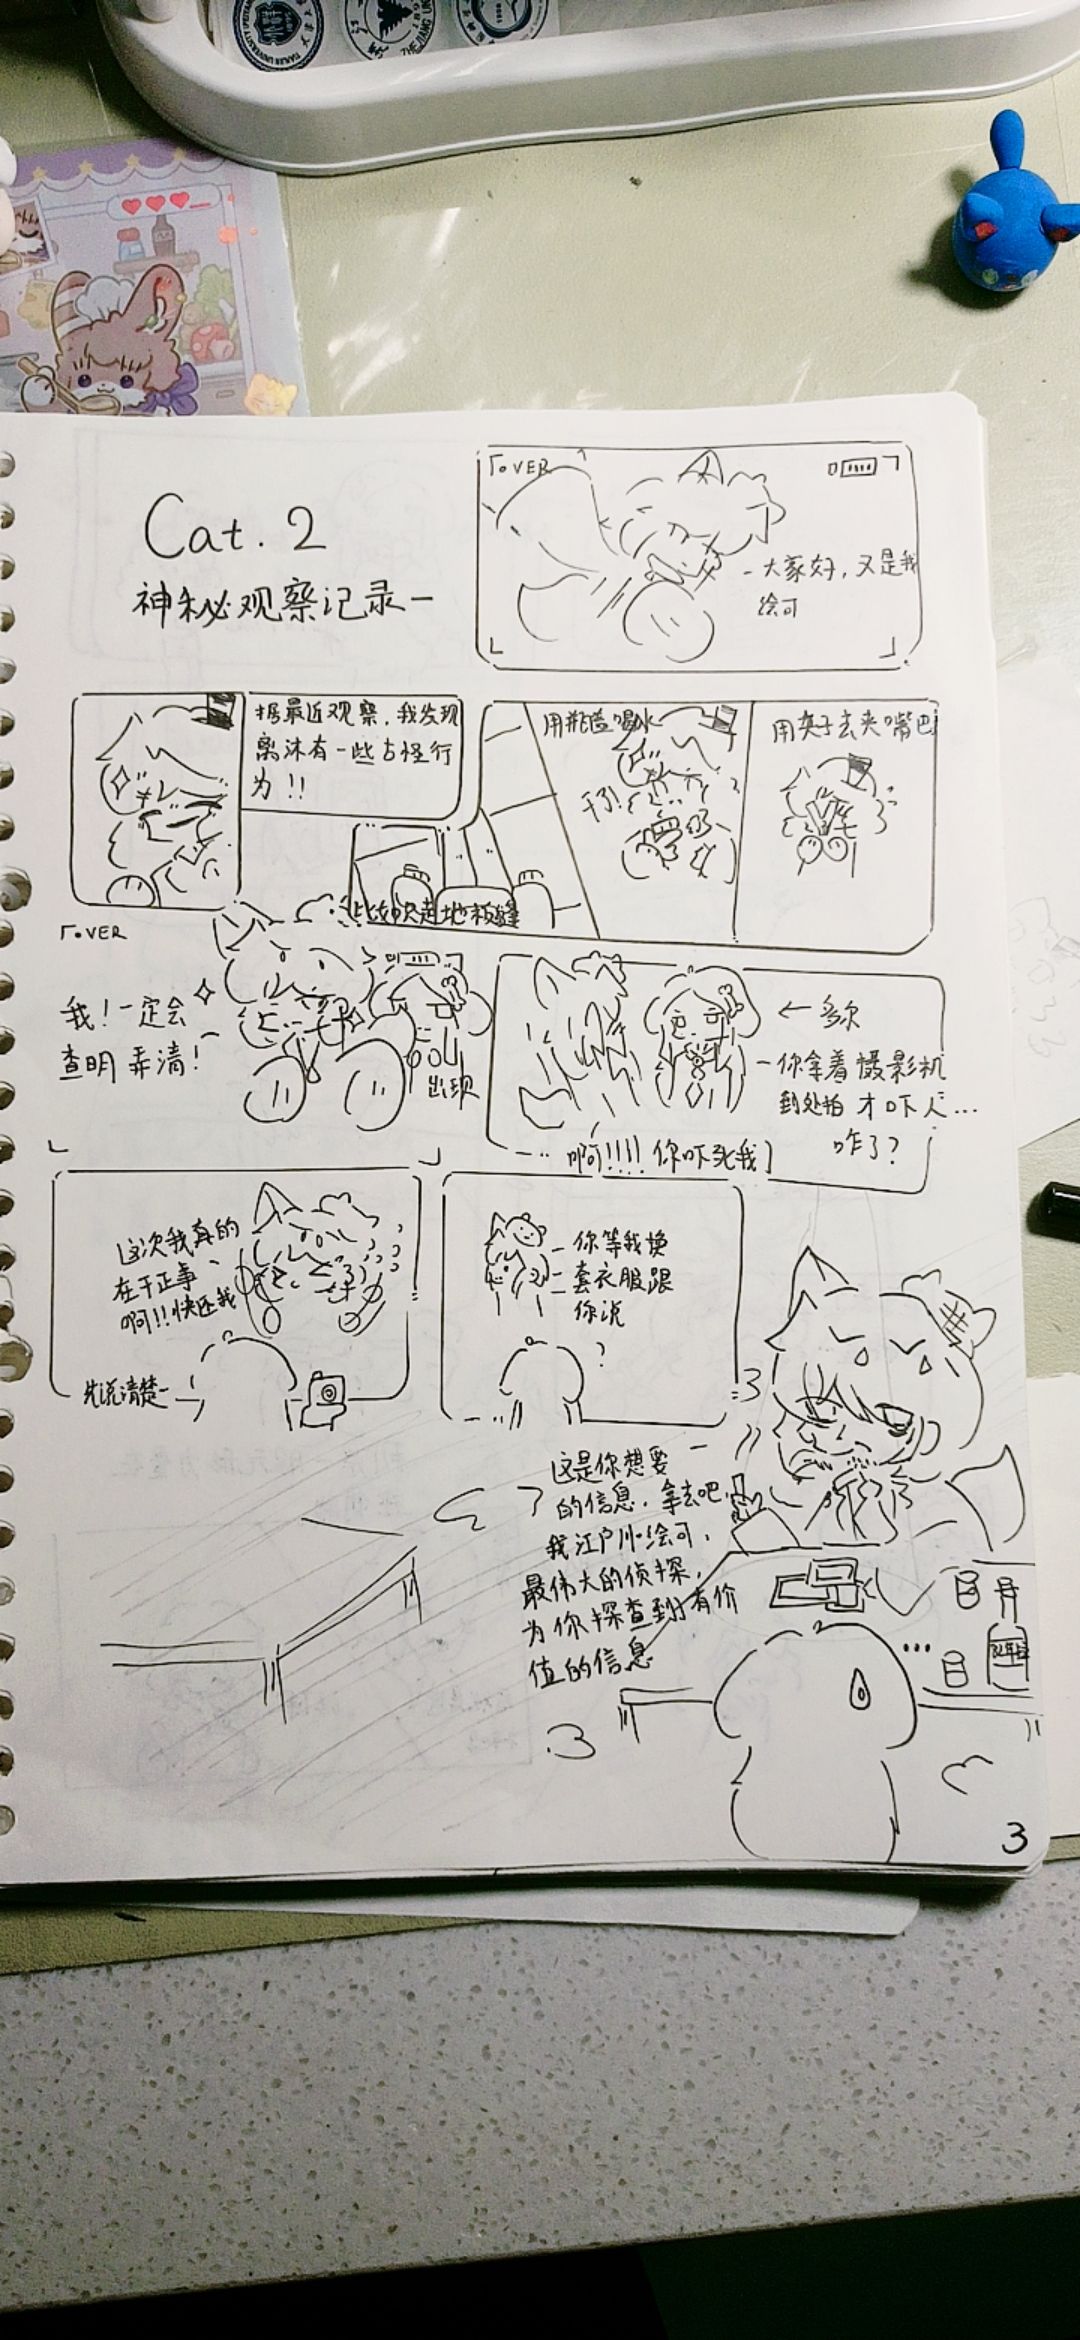 ZHEJIANG UNI
Cat. 2
神秘观察记录一
OVER
大家好，又是我
绘可
据最近观察，我发现
离沐有一些古怪行
为！！
比如只走地板缝
用瓶盖喝水
干了！
用夹子去夹嘴巴
OVER
我！一定会
查明弄清！
出现
← 多尔
你拿着摄影机
到处拍才吓人…
咋了？
啊！！！！你吓死我
这次我真的
在干正事
啊！！快还我
先说清楚
你等我换
套衣服跟
你说
？
这是你想要
的信息，拿去吧，
我江户川·绘可，
最伟大的侦探，
为你探查到有价
值的信息
…
3